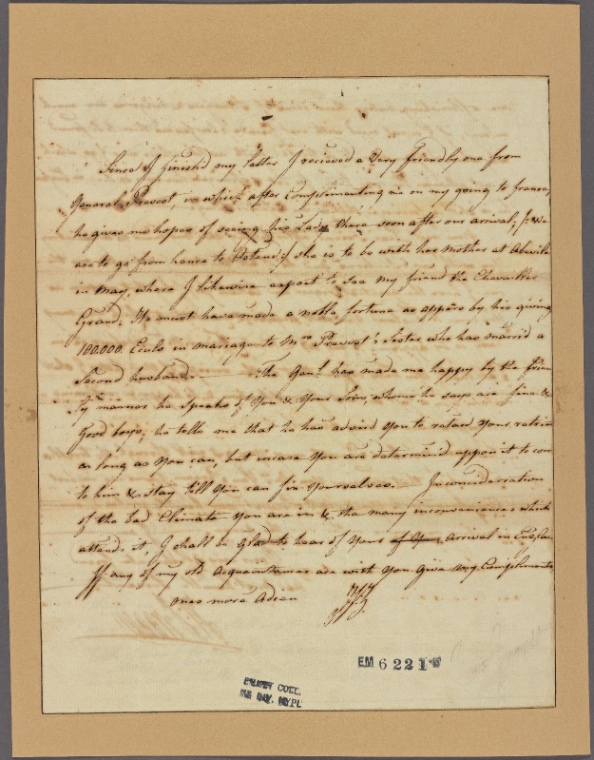 Since I finish'd my Letter I recieved a very friendly one from
General Prevost, in which after Complimenting me on my going to france,
he gives me hopes of seeing his Lady there soon after our arrival, for we
are to go from hence to Ostend & she is to be with her Mother at Abeville
in May, where I likewise expect to see my friend the Chevailler
Grand. He must have made a noble fortune as appers by his giving
100.000 Ecus in mariage to Mrs Prevost's Sister who has married a
Second husband. The Genl. has made me happy by the frien
dly manner he speaks of You & Your Sons, whome he says are fine &
Good boys, he tells me that he has advised You to retard Your retrin
as long as You can, but incase You are determined uppon it to com
to him & stay till You can fix Yourselves. In concideration
of the bad Climate You are in & the many inconveniences which
attends it, I shall be Glad to hear of Yours arrival in
If any of my old Acquaintances are with You Give my Compliments
once more Adieu
EM 6221
EMMET COLL.
NYPL